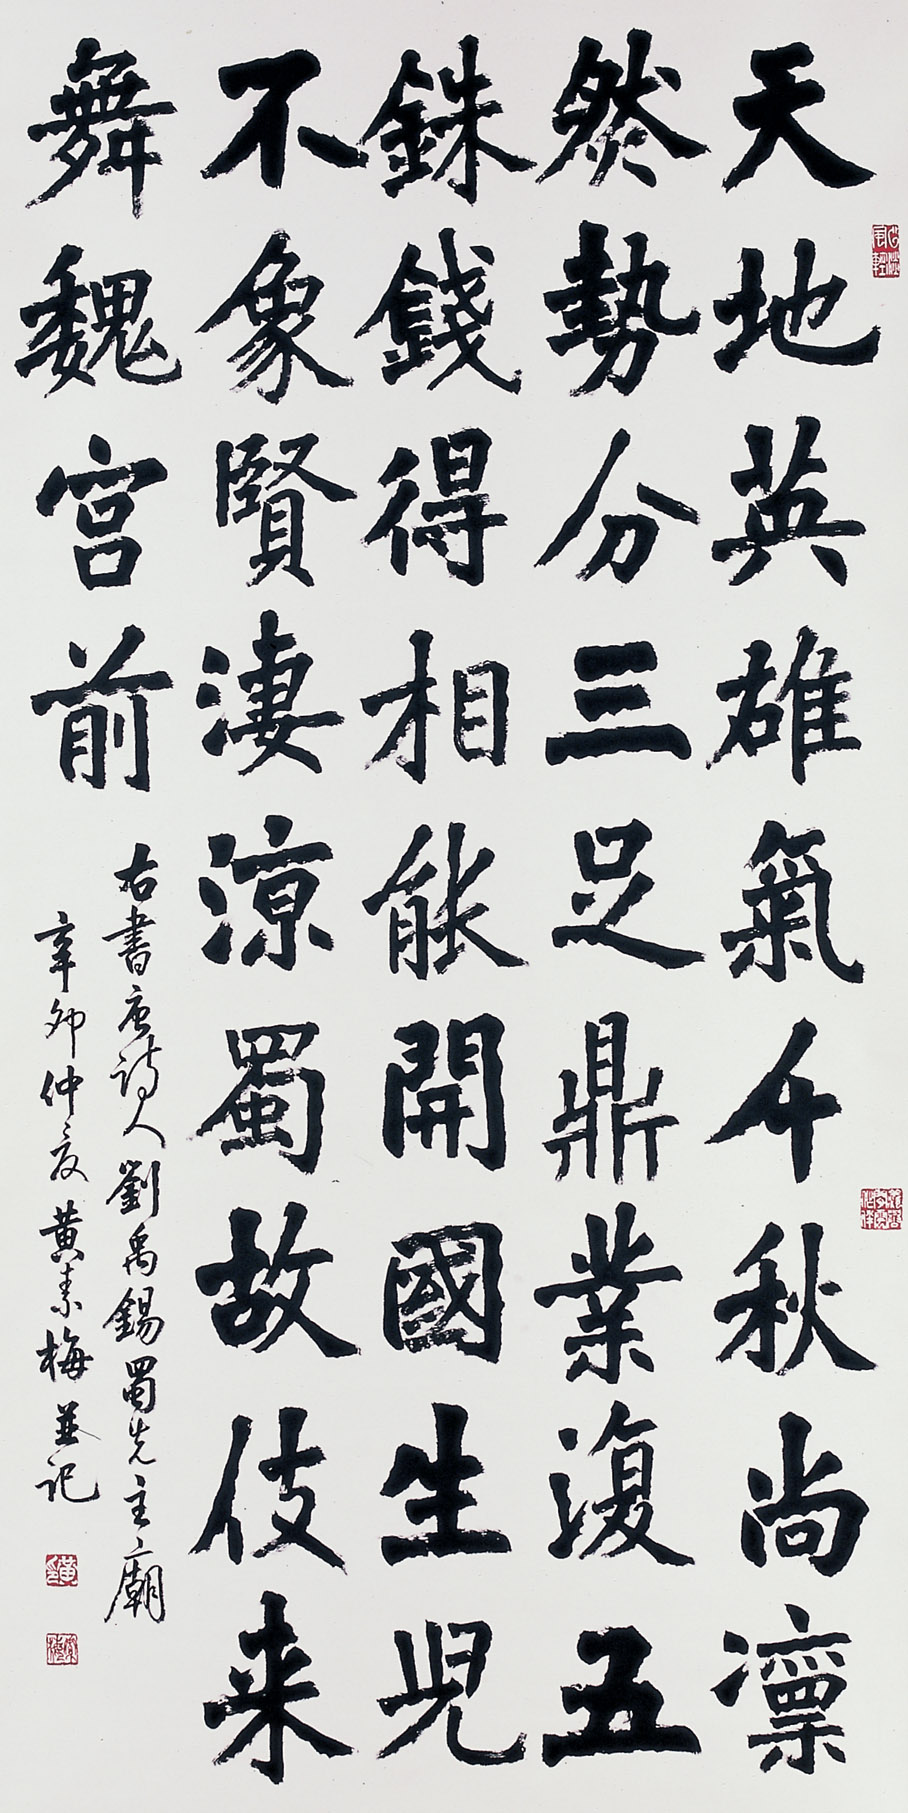 天地英雄氣千秋尚凛
然勢分三足鼎業復五
銖錢得相能開國生兒
不象賢淒涼蜀故伎来
舞魏宫前
右書唐詩人劉禹錫蜀先主廟
辛卯仲夏黄素梅並记